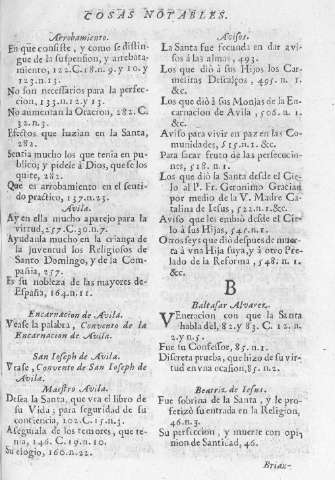 COSAS NOTABLES.
Arrobamiento.
En que consiste, y como se distingue
de la suspension, y arrobamiento,
122. C. 18. n. 9. y 10. y
123. n. 13.
No son necessarios para la perfeccion,
133. n. 12. y 13.
No aumentan la Oracion, 282. C.
32. n. 3.
Efectos que hazian en la Santa,
282.
Sentia mucho los que tenia en publico;
y pidele à Dios, que se los
quite, 282.
Que es arrobamiento en el sentido
practico, 137. n. 23.
Avila.
Ay en ella mucho aparejo para la
virtud, 257. C. 30. n. 7.
Ayudanla mucho en la criança de
la juventud los Religiosos de
Santo Domingo, y de la Compañia,
257.
Es su nobleza de las mayores de
España, 164. n. 11.
Encarnacion de Avila.
Vease la palabra, Convento de la
Encarnacion de Avila.
San Ioseph de Avila.
Vease, Convento de San Ioseph de
Avila.
Maestro Avila.
Desea la Santa, que vea el libro de
su Vida; para seguridad de su
conciencia, 102. C. 15. n. 3.
Asegurala de los temores, que tenia,
146. C. 19. n. 10.
Su elogio, 160. n. 22.
Avisos.
La Santa fue fecunda en dar avisos
á las almas, 493.
Los que dió à sus Hijos los Carmelitas
Descalços, 495. n. 1.
&c.
Los que dió à sus Monjas de la Encarnacion
de Avila, 506. n. 1.
&c.
Aviso para vivir en paz en las Comunidades,
515. n. 1. &c.
Para sacar fruto de las persecuciones,
518. n. 1.
Los que dió la Santa desde el Cielo
al P. Fr. Geronimo Gracian
por medio de la V. Madre Catalina
de Iesus, 522. n. 1. &c.
Aviso que les embió desde el Cielo
à sus Hijos, 545. n. 1.
Otros seys que dió despues de muerta
à vna Hija suya, y à otro Prelado
de la Reforma, 548. n. 1.
&c.
B
Baltasar Alvarez.
Veneracion con que la Santa
habla del, 82. y 83. C. 12. n.
2. y n. 5.
Fue su Confessor, 85. n. 1.
Discreta prueba, que hizo de su virtud
en vna ocasion, 85. n. 2.
Beatriz de Iesus.
Fue sobrina de la Santa, y le profetizó
su entrada en la Religion,
46. n. 3.
Su perfeccion, y muerte con opinion
de Santidad, 46.
Briax-